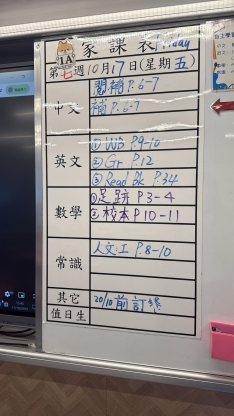 家課表 Friday
1A
第七週10月17日(星期五)
中文
閱補 P.6-7
補 P.6-7
英文
① WB P.9-10
② Gr P.12
③ Read Bk P.34
數學
①足跡 P.3-4
②校本 P.10-11
常識
人文:工 P.8-10
其它
20/10前訂繳
值日生